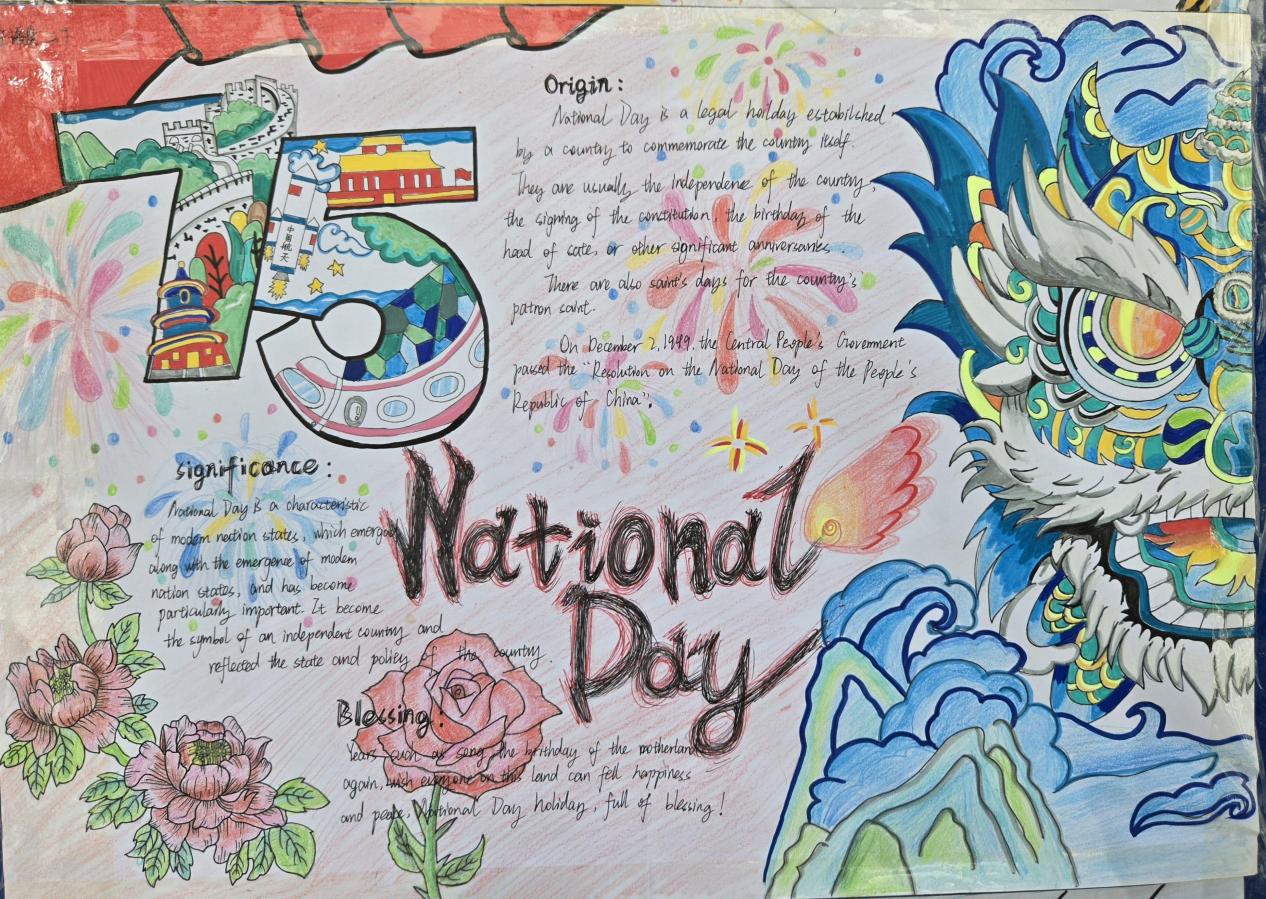 75
中国航天
Origin:
National Day is a legal hoilday estabilshed
by a country to commemorate the country itself.
They are usually the independence of the country,
the signing of the constitution, the birthday of the
head of sate, or other significant anniversaries.
There are also saint's days for the country's
patron saint.
On December 2, 1949. the Central People's Government
passed the "Resolution on the National Day of the People's
Republic of China".
significance:
National Day is a characteristic
of modern nation states, which emerge
along with the emergence of modern
nation states, and has become
particularly important. It become
the symbol of an independent country and
reflected the state and policy of the country.
National
Day
Blessing!
Years such as song, the birthday of the motherland
again, wish everyone on this land can fell happiness
and peace, National Day holiday, full of blessing!